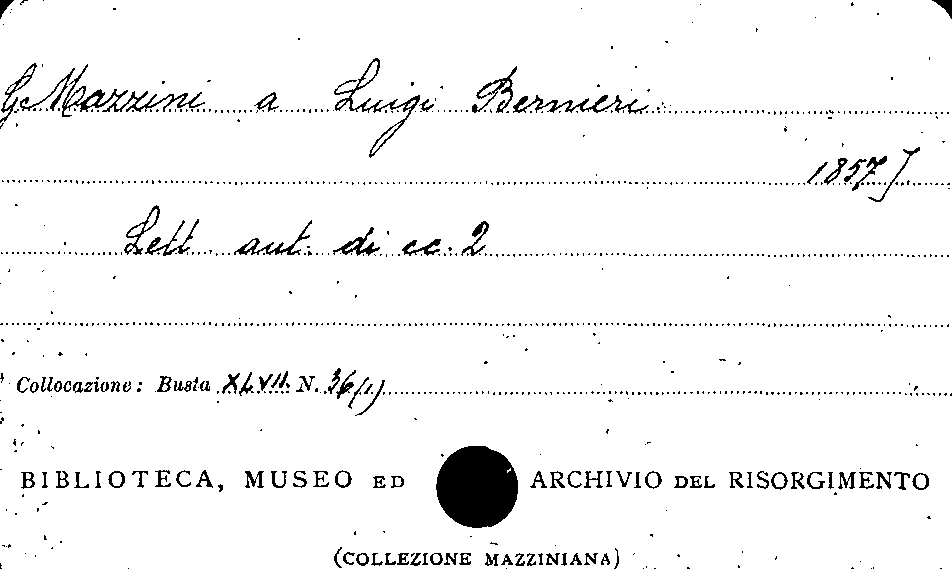 G. Mazzini a Luigi Bernieri.
1857]
Lett. aut. di cc. 2
Collocazione: Busta XLVII. N. 36(1)
BIBLIOTECA, MUSEO ED ARCHIVIO DEL RISORGIMENTO
(COLLEZIONE MAZZINIANA)